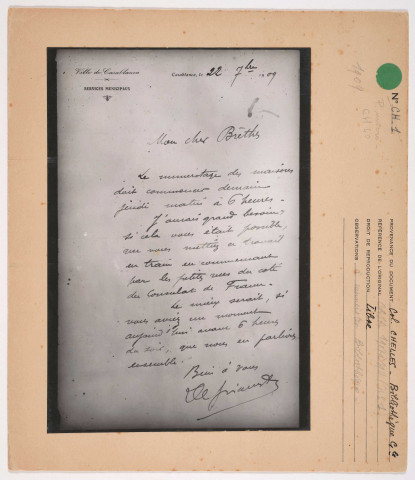 Ville de Casablanca
SERVICES MUNICIPAUX
Casablanca, le 22 7bre 1909
Mon cher Brèthes
Le numérotage des maisons
doit commencer demain
jeudi matin à 6 heures.
J'aurais grand besoin,
si cela vous était possible,
de vous mettre ce travail
en train en commençant
par les petites rues du côté
du Consulat de France.
Le mieux serait, si
vous aviez un moment
aujourd'hui avant 6 heures
du soir, que nous en parlions
ensemble.
Bien à vous
N° CH.1
1909
PROVENANCE DU DOCUMENT Col. CHELLES - Bibliothèque Gle
RÉFÉRENCE DE L'ORIGINAL
DROIT DE REPRODUCTION Libre
OBSERVATIONS